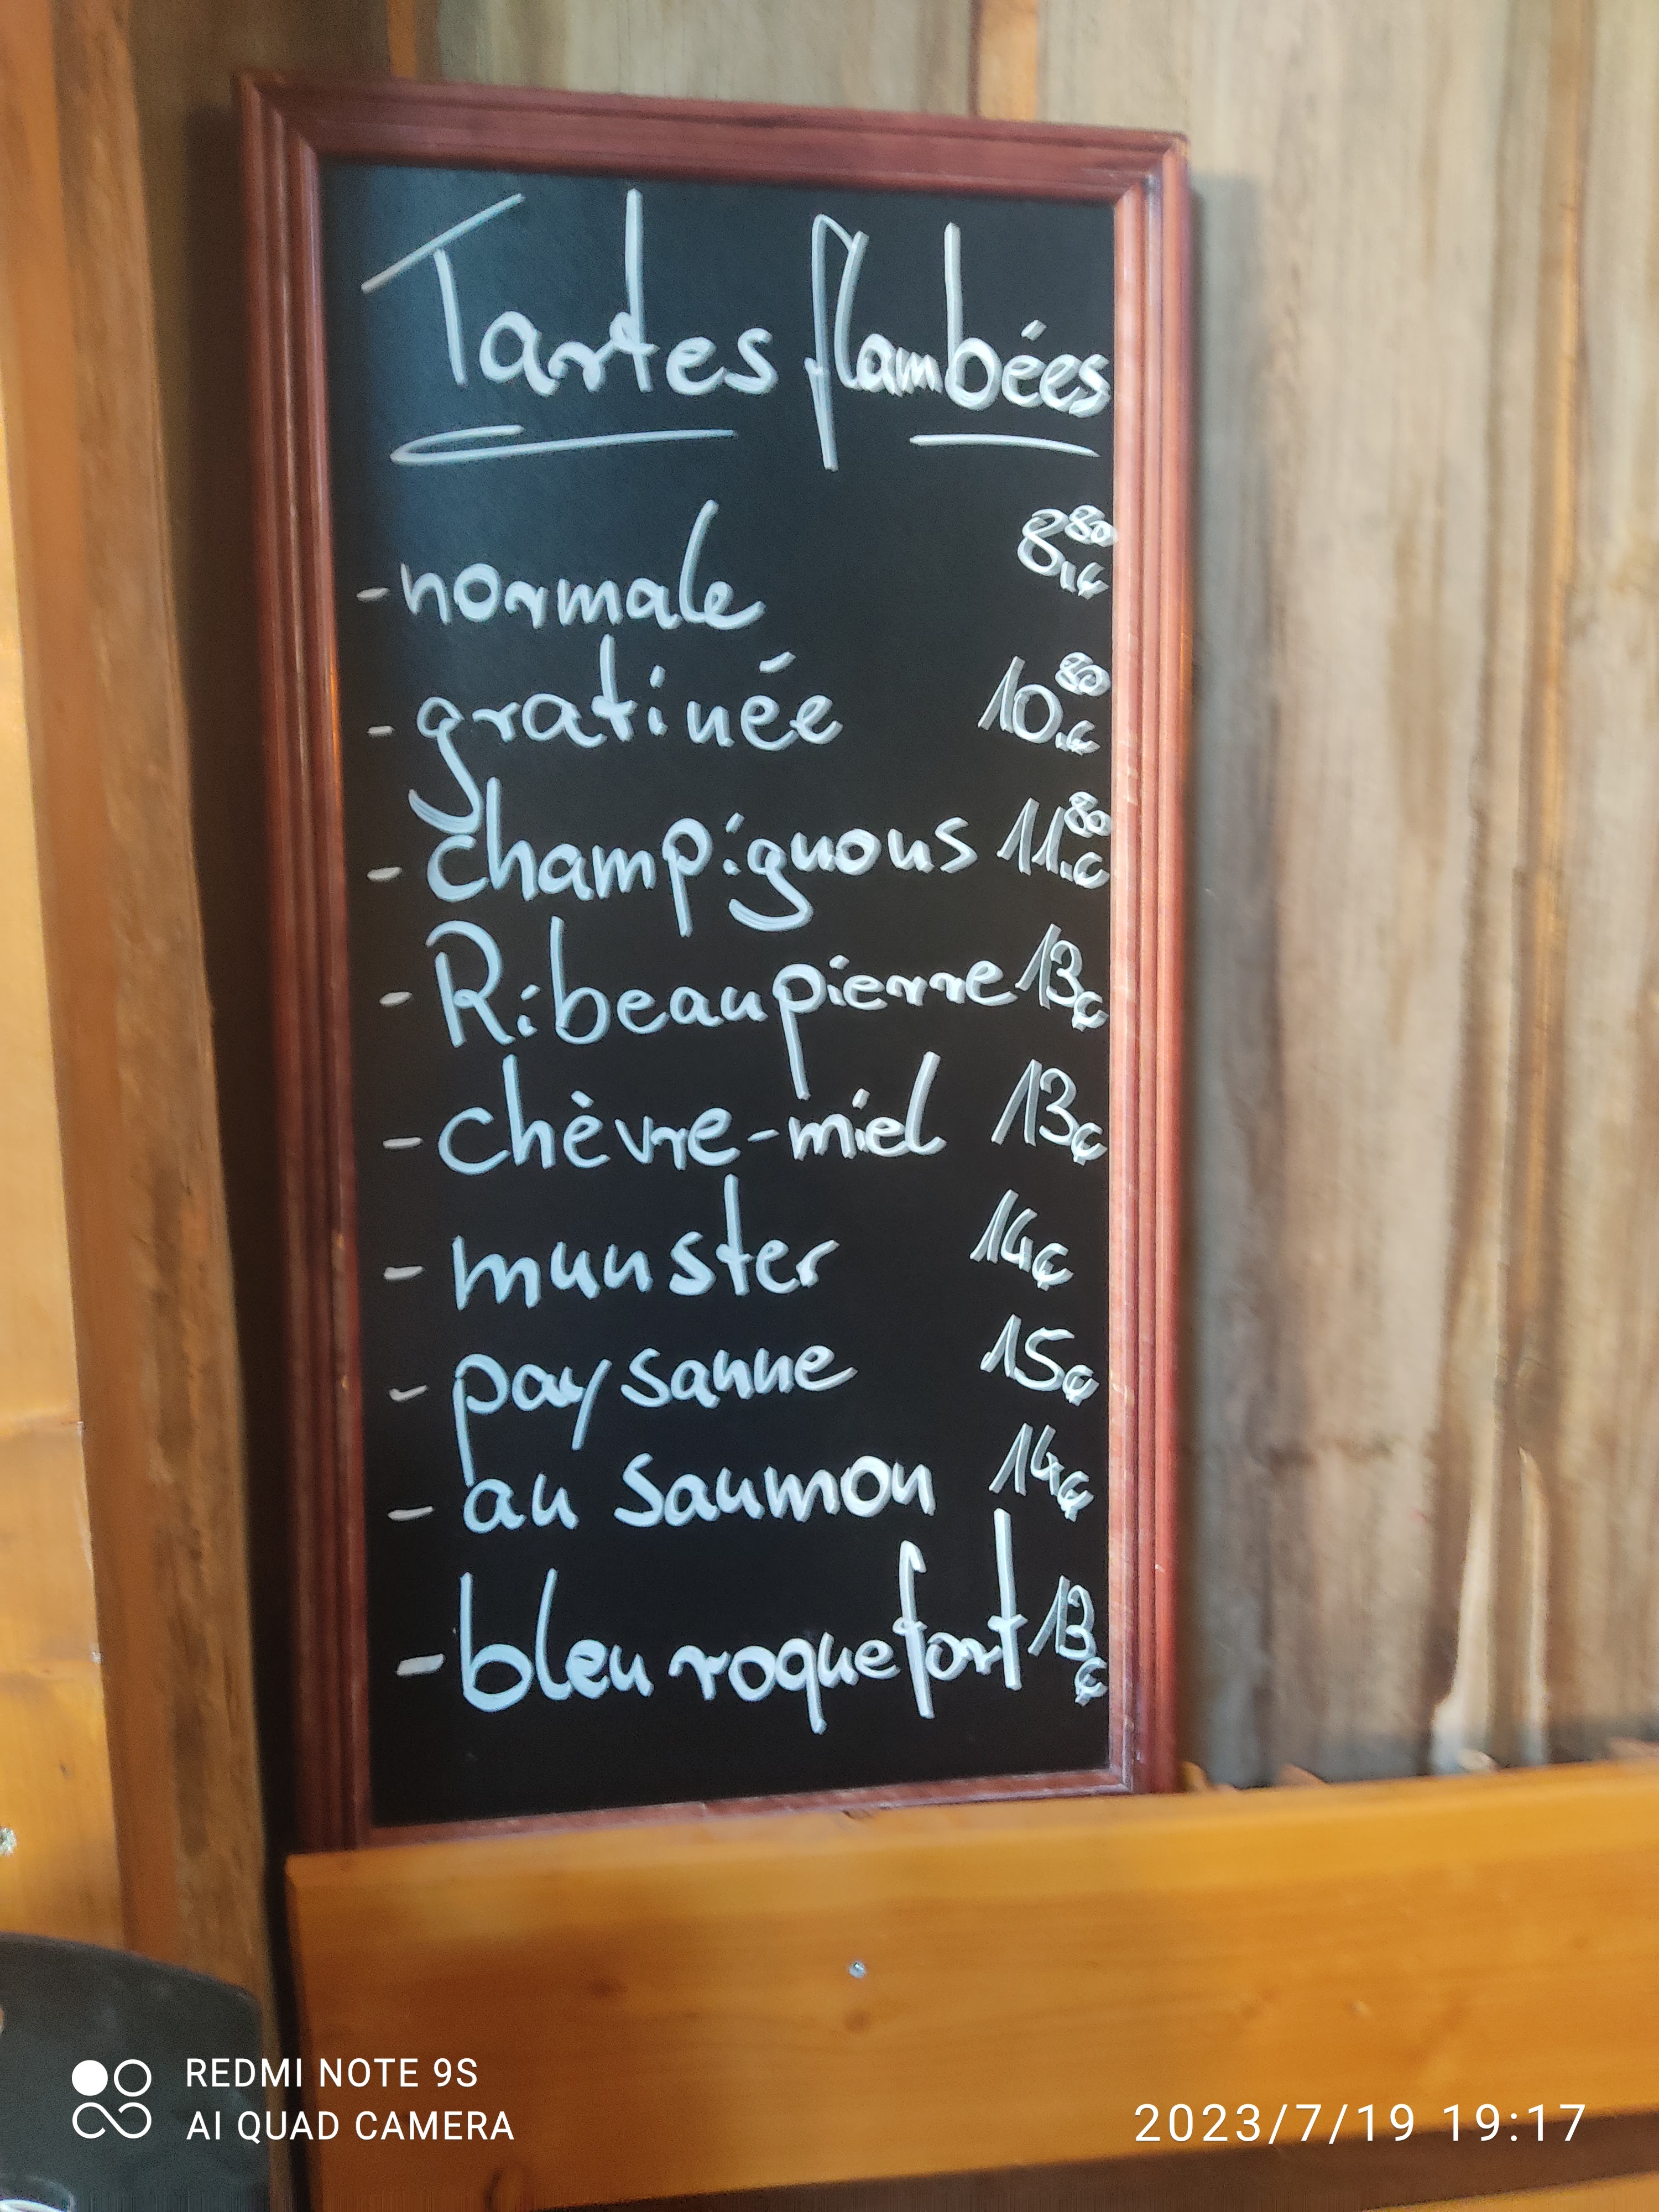 Tartes flambées
- normale 8,80€
- gratinée 10,80€
- champignons 11,80€
- Ribeaupierre 13€
- chèvre-miel 13€
- munster 14€
- paysanne 15€
- au saumon 14€
- bleu roquefort 13€
REDMI NOTE 9S
AI QUAD CAMERA
2023/7/19 19:17